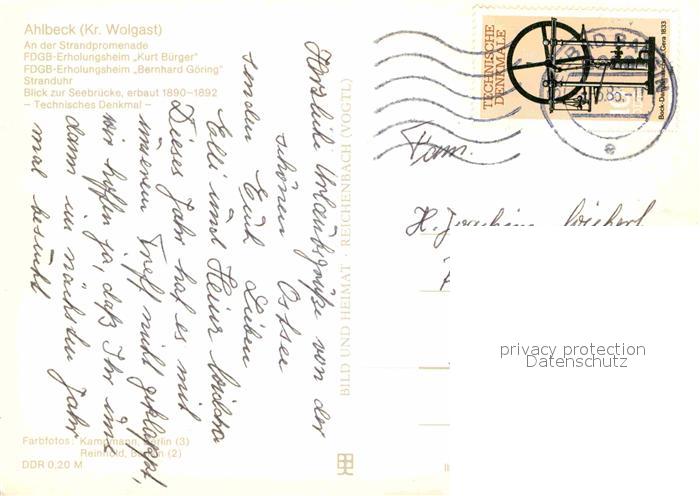 Ahlbeck (Kr. Wolgast)
An der Strandpromenade
FDGB-Erholungsheim „Kurt Bürger“
FDGB-Erholungsheim „Bernhard Göring“
Stranduhr
Blick zur Seebrücke, erbaut 1890–1892
– Technisches Denkmal –
Herzliche Urlaubsgrüße von der
schönen Ostsee
senden Euch Lieben
Elli und Heinz
Dieses Jahr hat es mit
unserem Treff nicht geklappt,
wir hoffen ja, daß Ihr uns
dann im nächsten Jahr
mal besucht
Farbfotos: Kampmann, Berlin (3)
Reinhold, Berlin (2)
DDR 0,20 M
BILD UND HEIMAT · REICHENBACH (VOGTL)
TECHNISCHE
DENKMALE
Gera 1833
Fam.
H. Joachim
privacy protection
Datenschutz